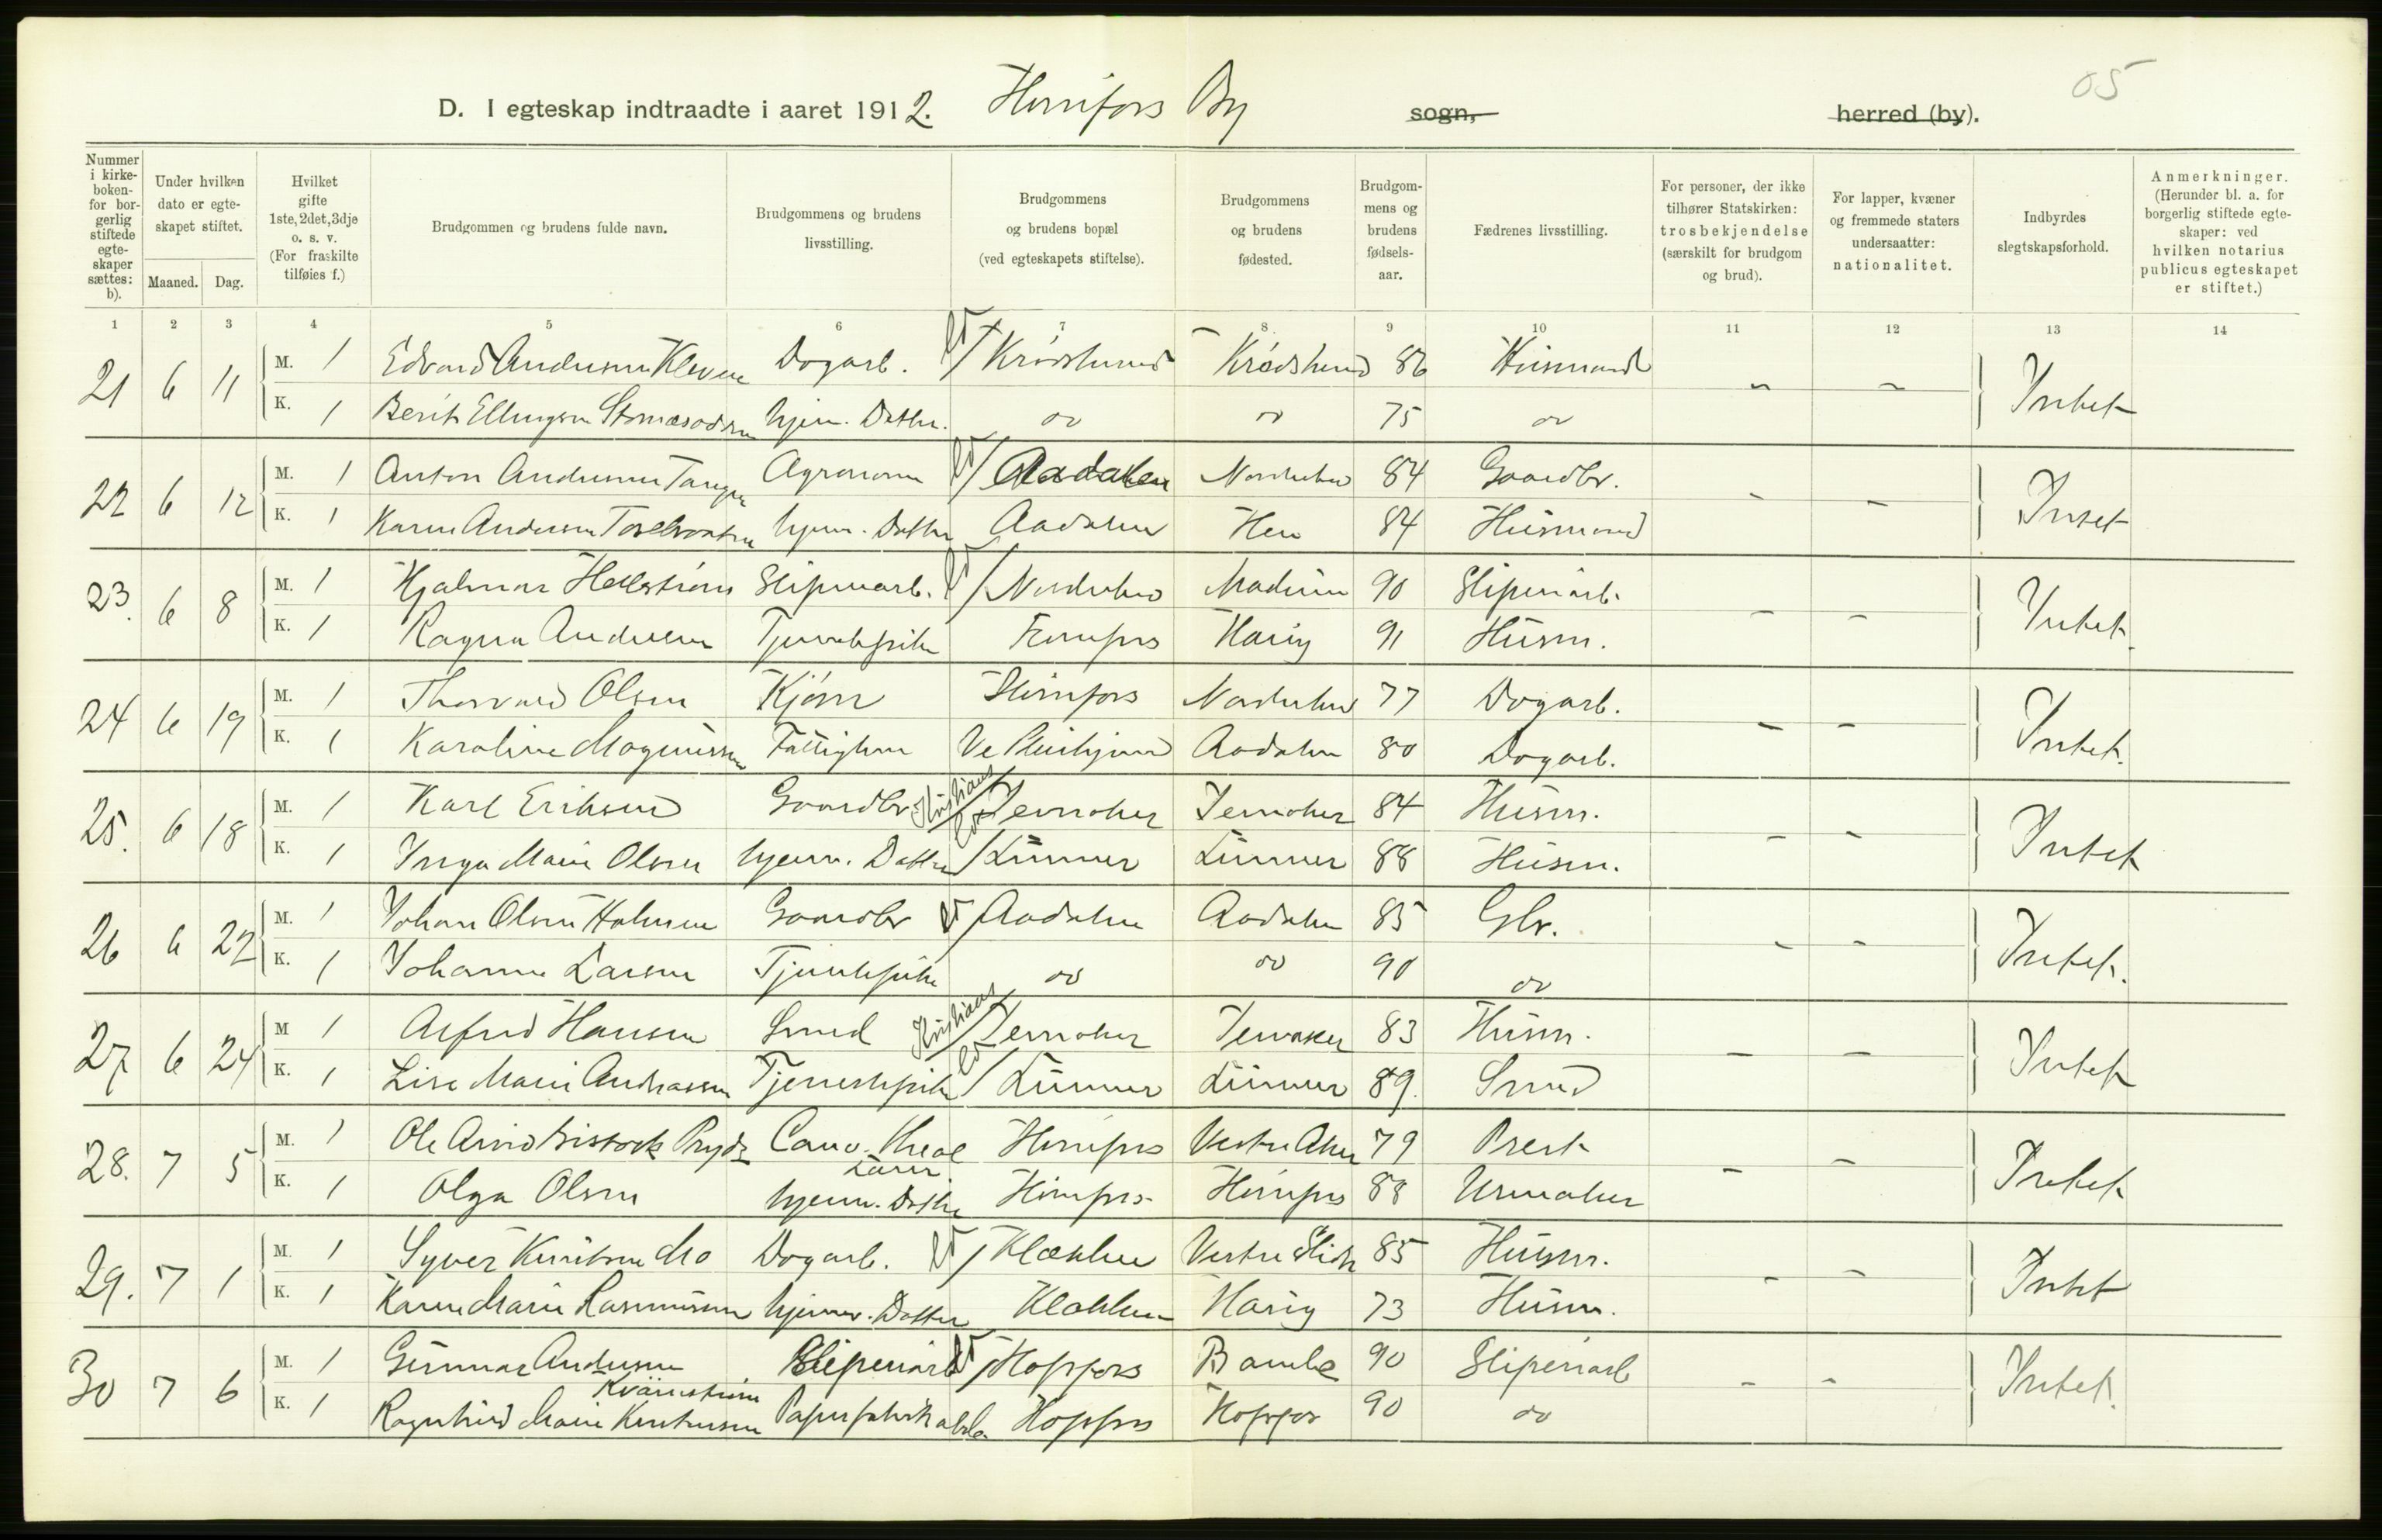 05
D. I egteskap indtraadte i aaret 1912. Hønefoss By sogn, herred (by).
Nummer i kirke-boken- for bor-gerlig stiftede egte-skaper sættes: b).
Under hvilken dato er egte-skapet stiftet.
Maaned. Dag.
Hvilket gifte 1ste, 2det, 3dje o. s. v. (For fraskilte tilføies f.)
Brudgommen og brudens fulde navn.
Brudgommens og brudens livsstilling.
Brudgommens og brudens bopæl (ved egteskapets stiftelse).
Brudgommens og brudens fødested.
Brudgom-mens og brudens fødsels-aar.
Fædrenes livsstilling.
For personer, der ikke tilhører Statskirken: trosbekjendelse (særskilt for brudgom og brud).
For lapper, kvæner og fremmede staters undersaatter: nationalitet.
Indbyrdes slegtskapsforhold.
Anmerkninger. (Herunder bl. a. for borgerlig stiftede egte-skaper: ved hvilken notarius publicus egteskapet er stiftet.)
1 2 3 4 5 6 7 8 9 10 11 12 13 14
21 6 11 M. 1 Edvard Andersen Kleven Dagarb. Krødsherred Krødsherred 86 Husmand - - Intet
K. 1 Berit Ellingsen hjem. Datter do do 75 do
22 6 12 M. 1 Anton Andersen Tangen Agronom Aadalen Norderhov 84 Gaardbr. - - Intet
K. 1 Karen Andersen hjem. Datter Aadalen Hen 84 Husmand
23. 6 8 M. 1 Hjalmar Hellstrøm Sliperiarb. Norderhov Modum 90 Sliperiarb. - - Intet.
K. 1 Ragna Andersen Tjenestepike Hønefos Haug 91 Husm.
24 6 19 M. 1 Thorvald Olsen Kjører Hønefos Norderhov 77 Dagarb. - - Intet.
K. 1 Karoline Magnussen Aadalen 80 Dagarb.
25. 6 18 M. 1 Karl Eriksen Gaardbr. Kristians Jevnaker Jevnaker 84 Husm. - - Intet
K. 1 Inga Marie Olsen hjem. Datter Lunner Lunner 88 Husm.
26 6 22 M. 1 Johan Olsen Holmen Gaardbr Aadalen Aadalen 85 Gbr. - - Intet.
K. 1 Johanne Larsen Tjenestepike do do 90 do
27 6 24 M 1 Alfred Hansen Smed Kristians Jevnaker Jevnaker 83 Husm. - - Intet
K. 1 Lise Marie Andreassen Tjenestepike Lunner Lunner 89. Smed
28. 7 5 M. 1 Ole Arvid Prydz Cand. theol Hønefos Vestre Aker 79 Prest - - Intet
K. 1 Olga Olsen hjem. Datter Hønefos Hønefos 88 Urmaker
29. 7 1 M. 1 Syver Knutsen Mo Dagarb. Klækken Vestre Slidre 85 Husm. - - Intet
K. 1 Karen Marie Rasmussen hjem. Datter Klækken Haug 73 Husm.
30 7 6 M. 1 Gunnar Andersen Sliperiarb Hofsfos Bamle 90 Sliperiarb - - Intet.
K. 1 Ragnhild Marie Knutsen Hofsfos Hofsfos 90 do